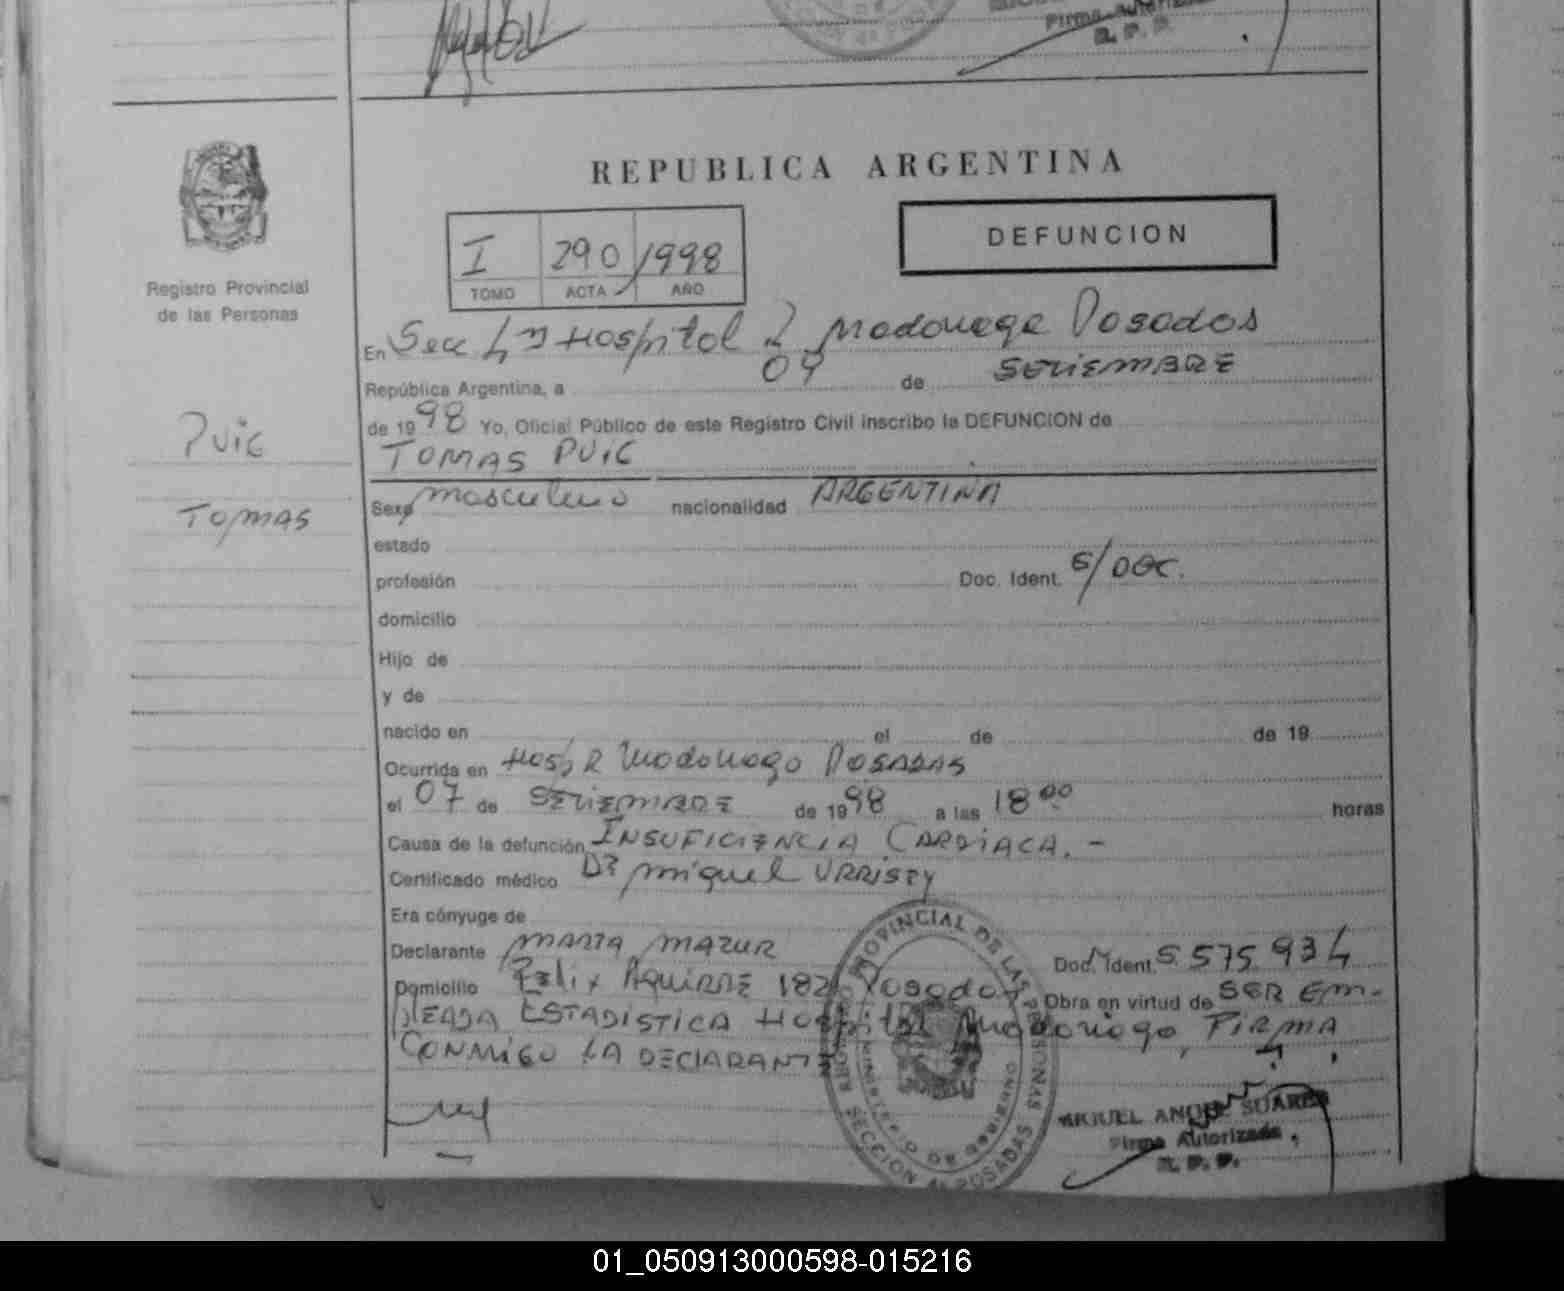 Firma Autorizada
R. P. P.
REPUBLICA ARGENTINA
I 290 1998
TOMO ACTA AÑO
DEFUNCION
Registro Provincial
de las Personas
Puig
Tomas
En Secc 4ta Hospital R Madariaga Posadas
República Argentina, a 09 de SETIEMBRE
de 1998 Yo, Oficial Público de este Registro Civil inscribo la DEFUNCION de
TOMAS PUIG
Sexo masculino nacionalidad ARGENTINA
estado
profesión Doc. Ident. S/DOC.
domicilio
Hijo de
y de
nacido en el de de 19
Ocurrida en Hosp R Madariaga POSADAS
el 07 de SETIEMBRE de 1998 a las 18 00 horas
Causa de la defunción INSUFICIENCIA CARDIACA. -
Certificado médico Dr Miguel
Era cónyuge de
Declarante MARTA MAZUR Doc. Ident. 5.575.934
Domicilio Felix AGUIRRE 182 Posadas Obra en virtud de SER EM-
PLEADA ESTADISTICA Hospital Madariaga, FIRMA
CONMIGO LA DECLARANTE
REGISTRO PROVINCIAL DE LAS PERSONAS
MINISTERIO DE GOBIERNO
SECCION 4a POSADAS
MIGUEL ANGEL SUAREZ
Firma Autorizada
R. P. P.
01_050913000598-015216